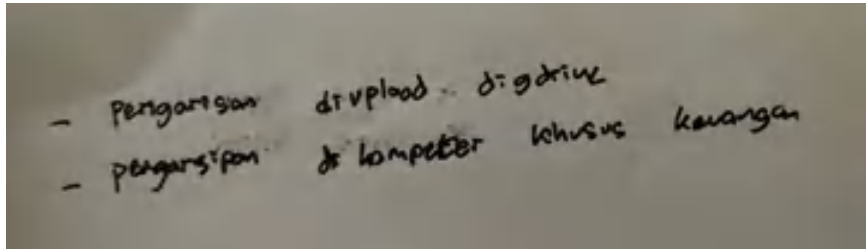 - Pengarsipan diupload digdrive
- pengarsipan di kompeter khusus keuangan